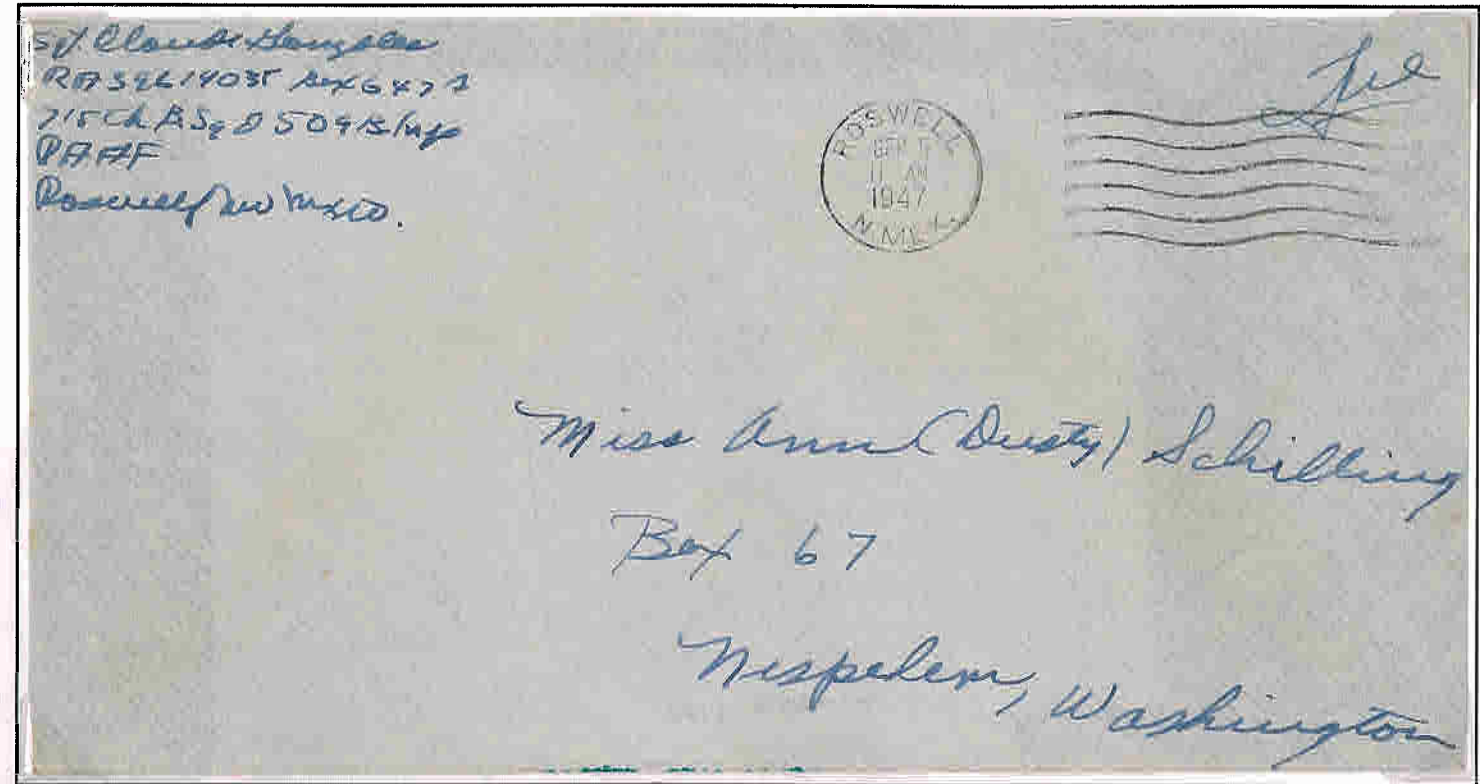 Sgt Claude Gonzales
RA 39614035 Box 647
715th B. Sqd 509 B/Wg
RAAF
Roswell, New Mexico.
Free
ROSWELL
11 AM
1947
N. MEX.
Miss Ann (Dusty) Schilling
Box 67
Nespelem, Washington